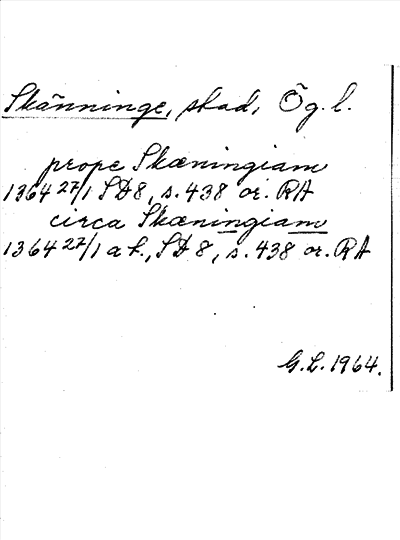 Skänninge, stad, Ög. l.
prope Skæningiam
1364 27/1 SD 8, s. 438 or. RA
circa Skæningiam
1364 27/1 a k., SD 8, s. 438 or. RA
G. L. 1964.